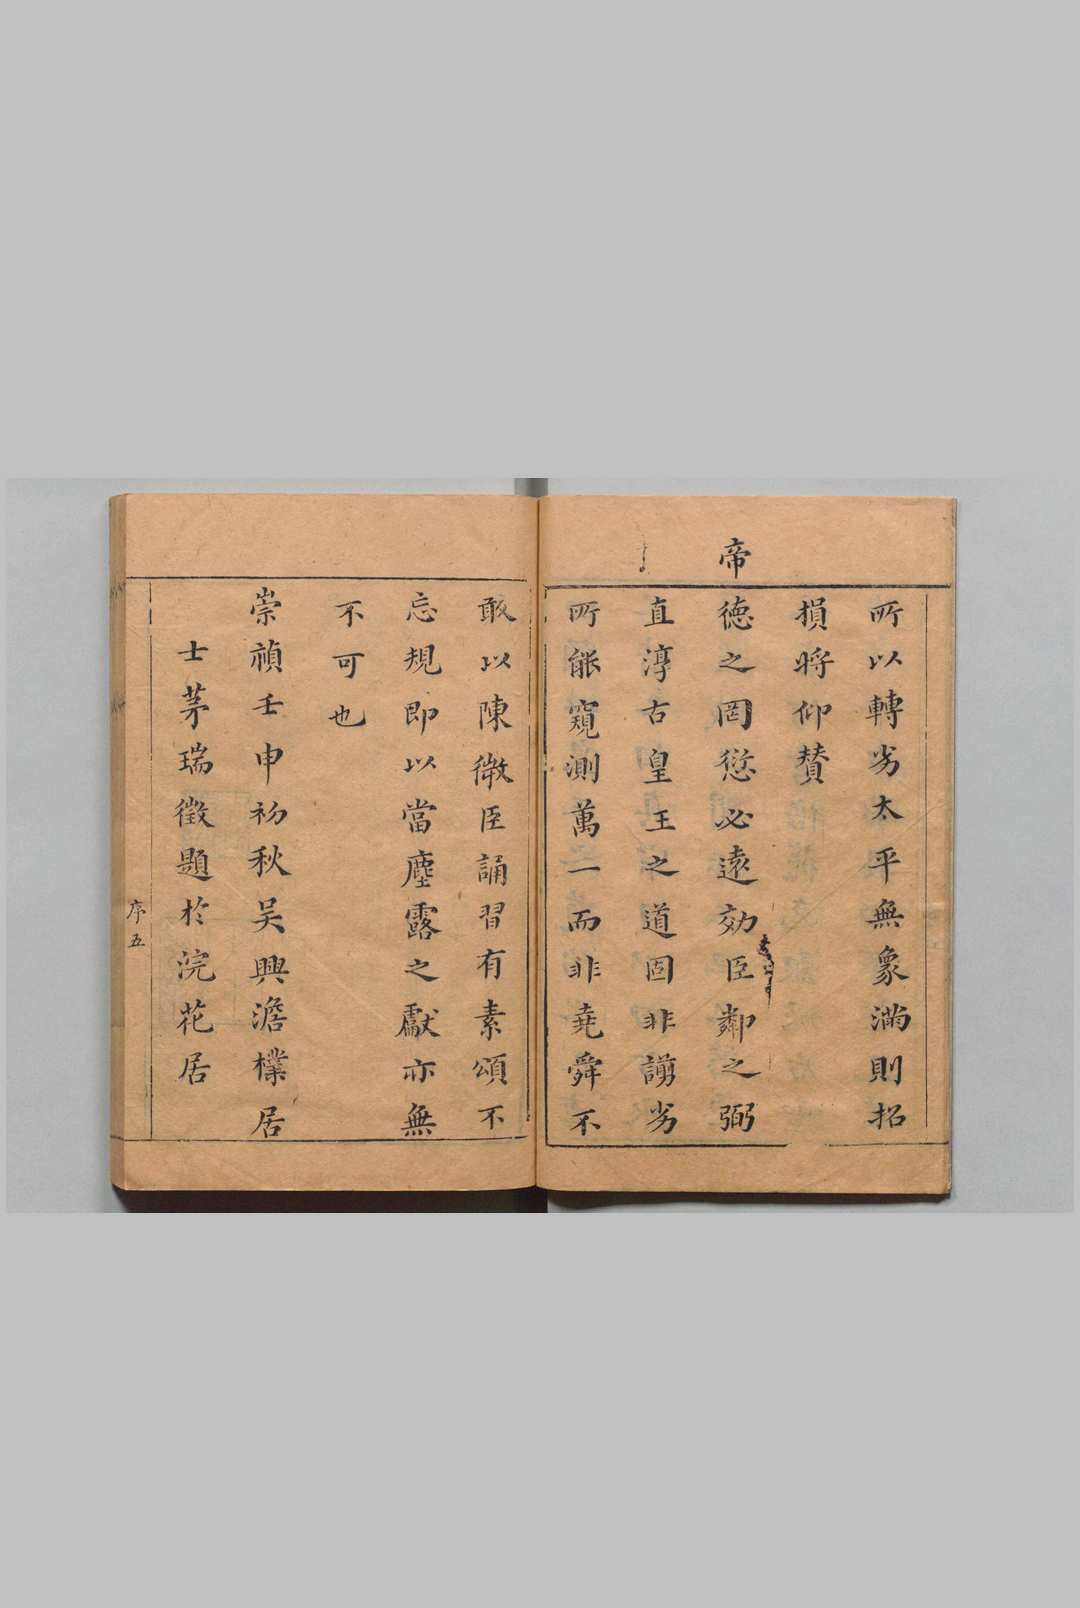 所以轉劣太平無象滿則招
損將仰贊
帝
德之罔愆必遠効臣鄰之弼
直淳古皇王之道固非謭劣
所能窺測萬一而非堯舜不
敢以陳微臣誦習有素頌不
忘規即以當塵露之獻亦無
不可也
崇禎壬申初秋吴興澹樸居
士茅瑞徵題於浣花居
序五